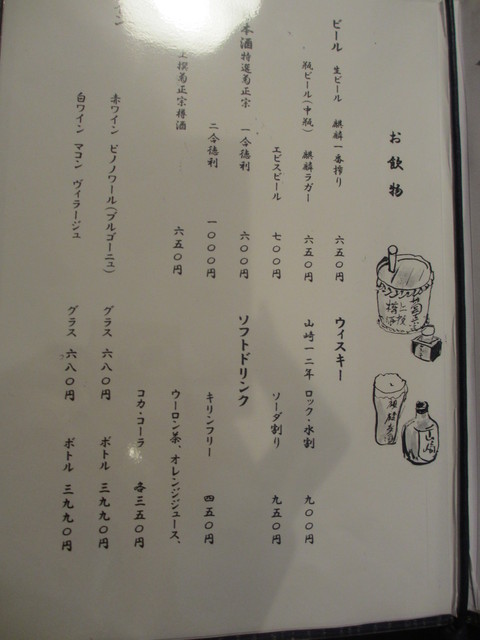 お飲物
ビール 生ビール 麒麟一番搾り 六五〇円
瓶ビール(中瓶) 麒麟ラガー 六五〇円
ヱビスビール 七〇〇円
本酒 特選菊正宗 一合徳利 六〇〇円
二合徳利 一〇〇〇円
上撰菊正宗樽酒 六五〇円
赤ワイン ピノノワール(ブルゴーニュ) グラス 六八〇円 ボトル 三九九〇円
白ワイン マコン ヴィラージュ グラス 六八〇円 ボトル 三九九〇円
ウィスキー
山崎一二年 ロック・水割 九〇〇円
ソーダ割り 九五〇円
ソフトドリンク
キリンフリー 四五〇円
ウーロン茶、オレンジジュース、
コカ・コーラ 各三五〇円
菊正宗
上撰
樽酒
山崎